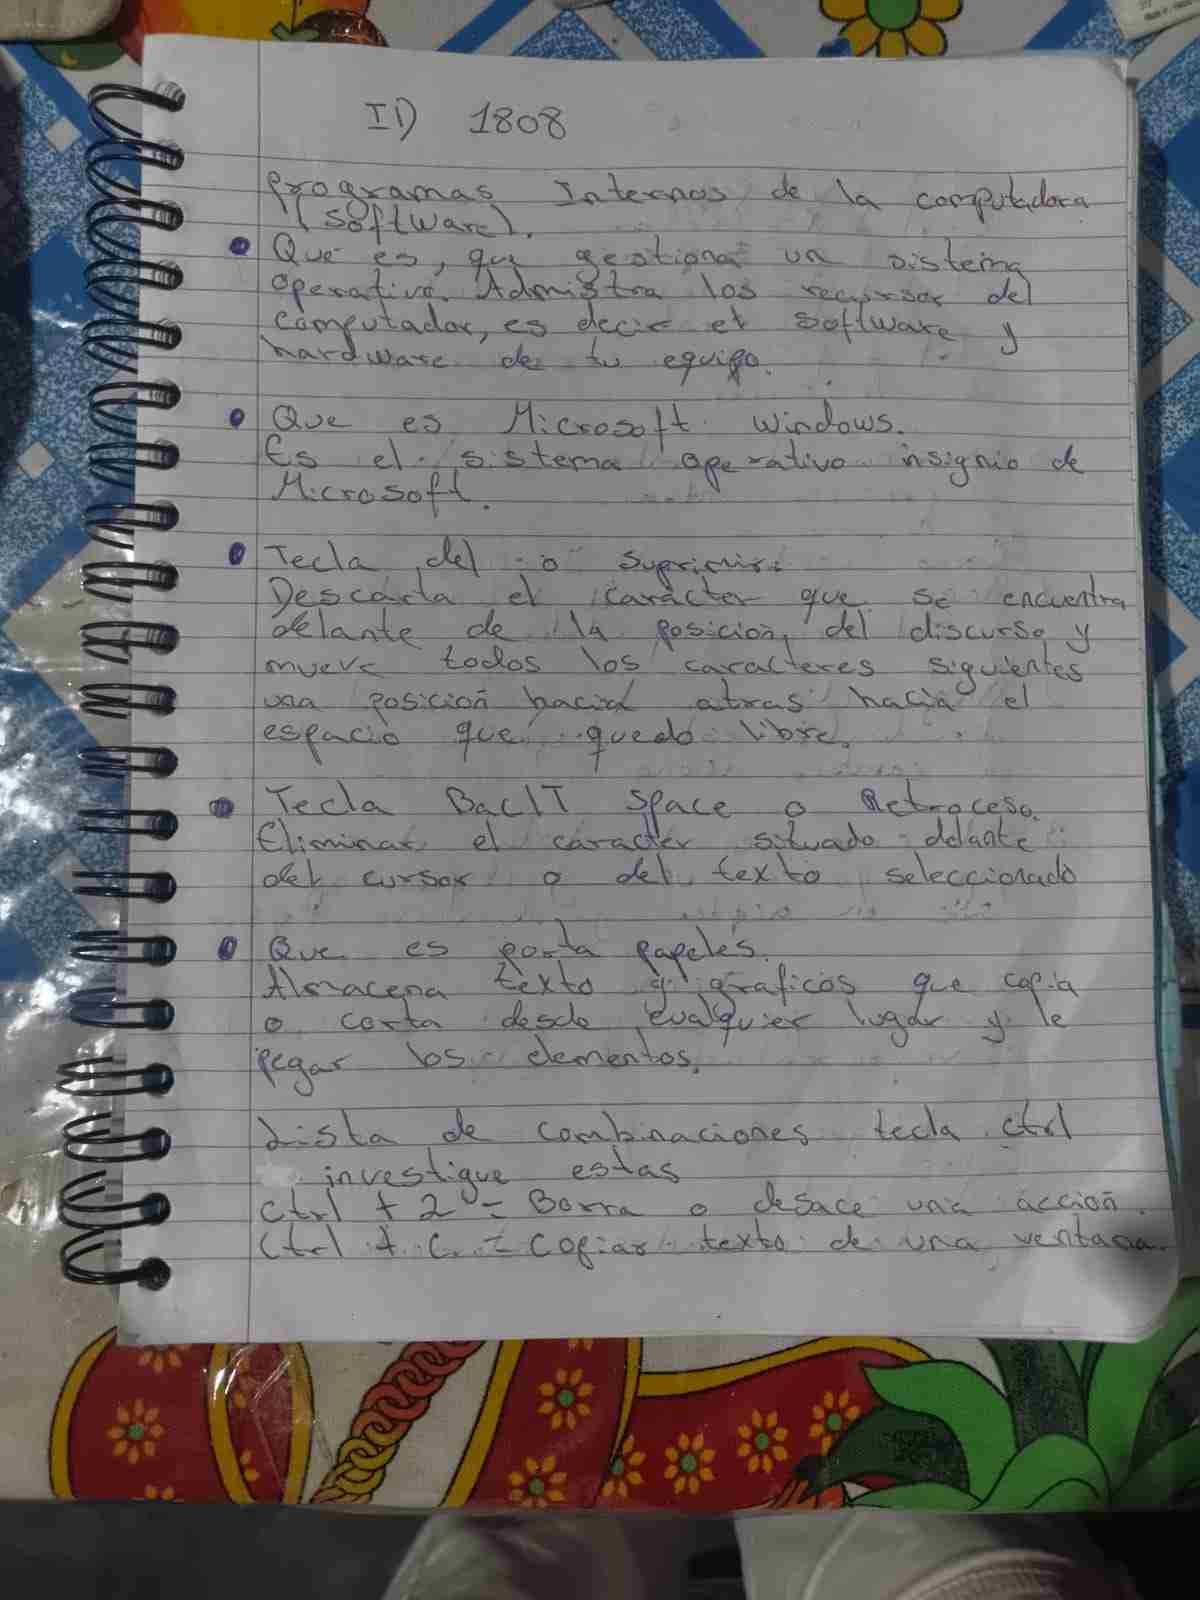 ID 1808
Programas Internos de la computadora
(Software).
Que es, que gestiona un sistema
operativo. Admistra los recursos del
computador, es decir el software y
hardware de tu equipo.
Que es Microsoft Windows.
Es el sistema operativo insignio de
Microsoft.
Tecla del o suprimir:
Descarta el carácter que se encuentra
delante de la posicion, del discurso y
mueve todos los caracteres siguientes
una posición hacia atras hacia el
espacio que quedo libre.
Tecla BacIT Space o Retroceso.
Eliminar el caracter situado delante
del cursor o del texto seleccionado
Que es porta papeles.
Almacena texto y graficos que copia
o corta desde cualquier lugar y le
pegar los elementos.
Lista de combinaciones tecla ctrl
investigue estas
Ctrl + 2 = Borra o desace una acción.
Ctrl + C. = Copiar texto de una ventana.